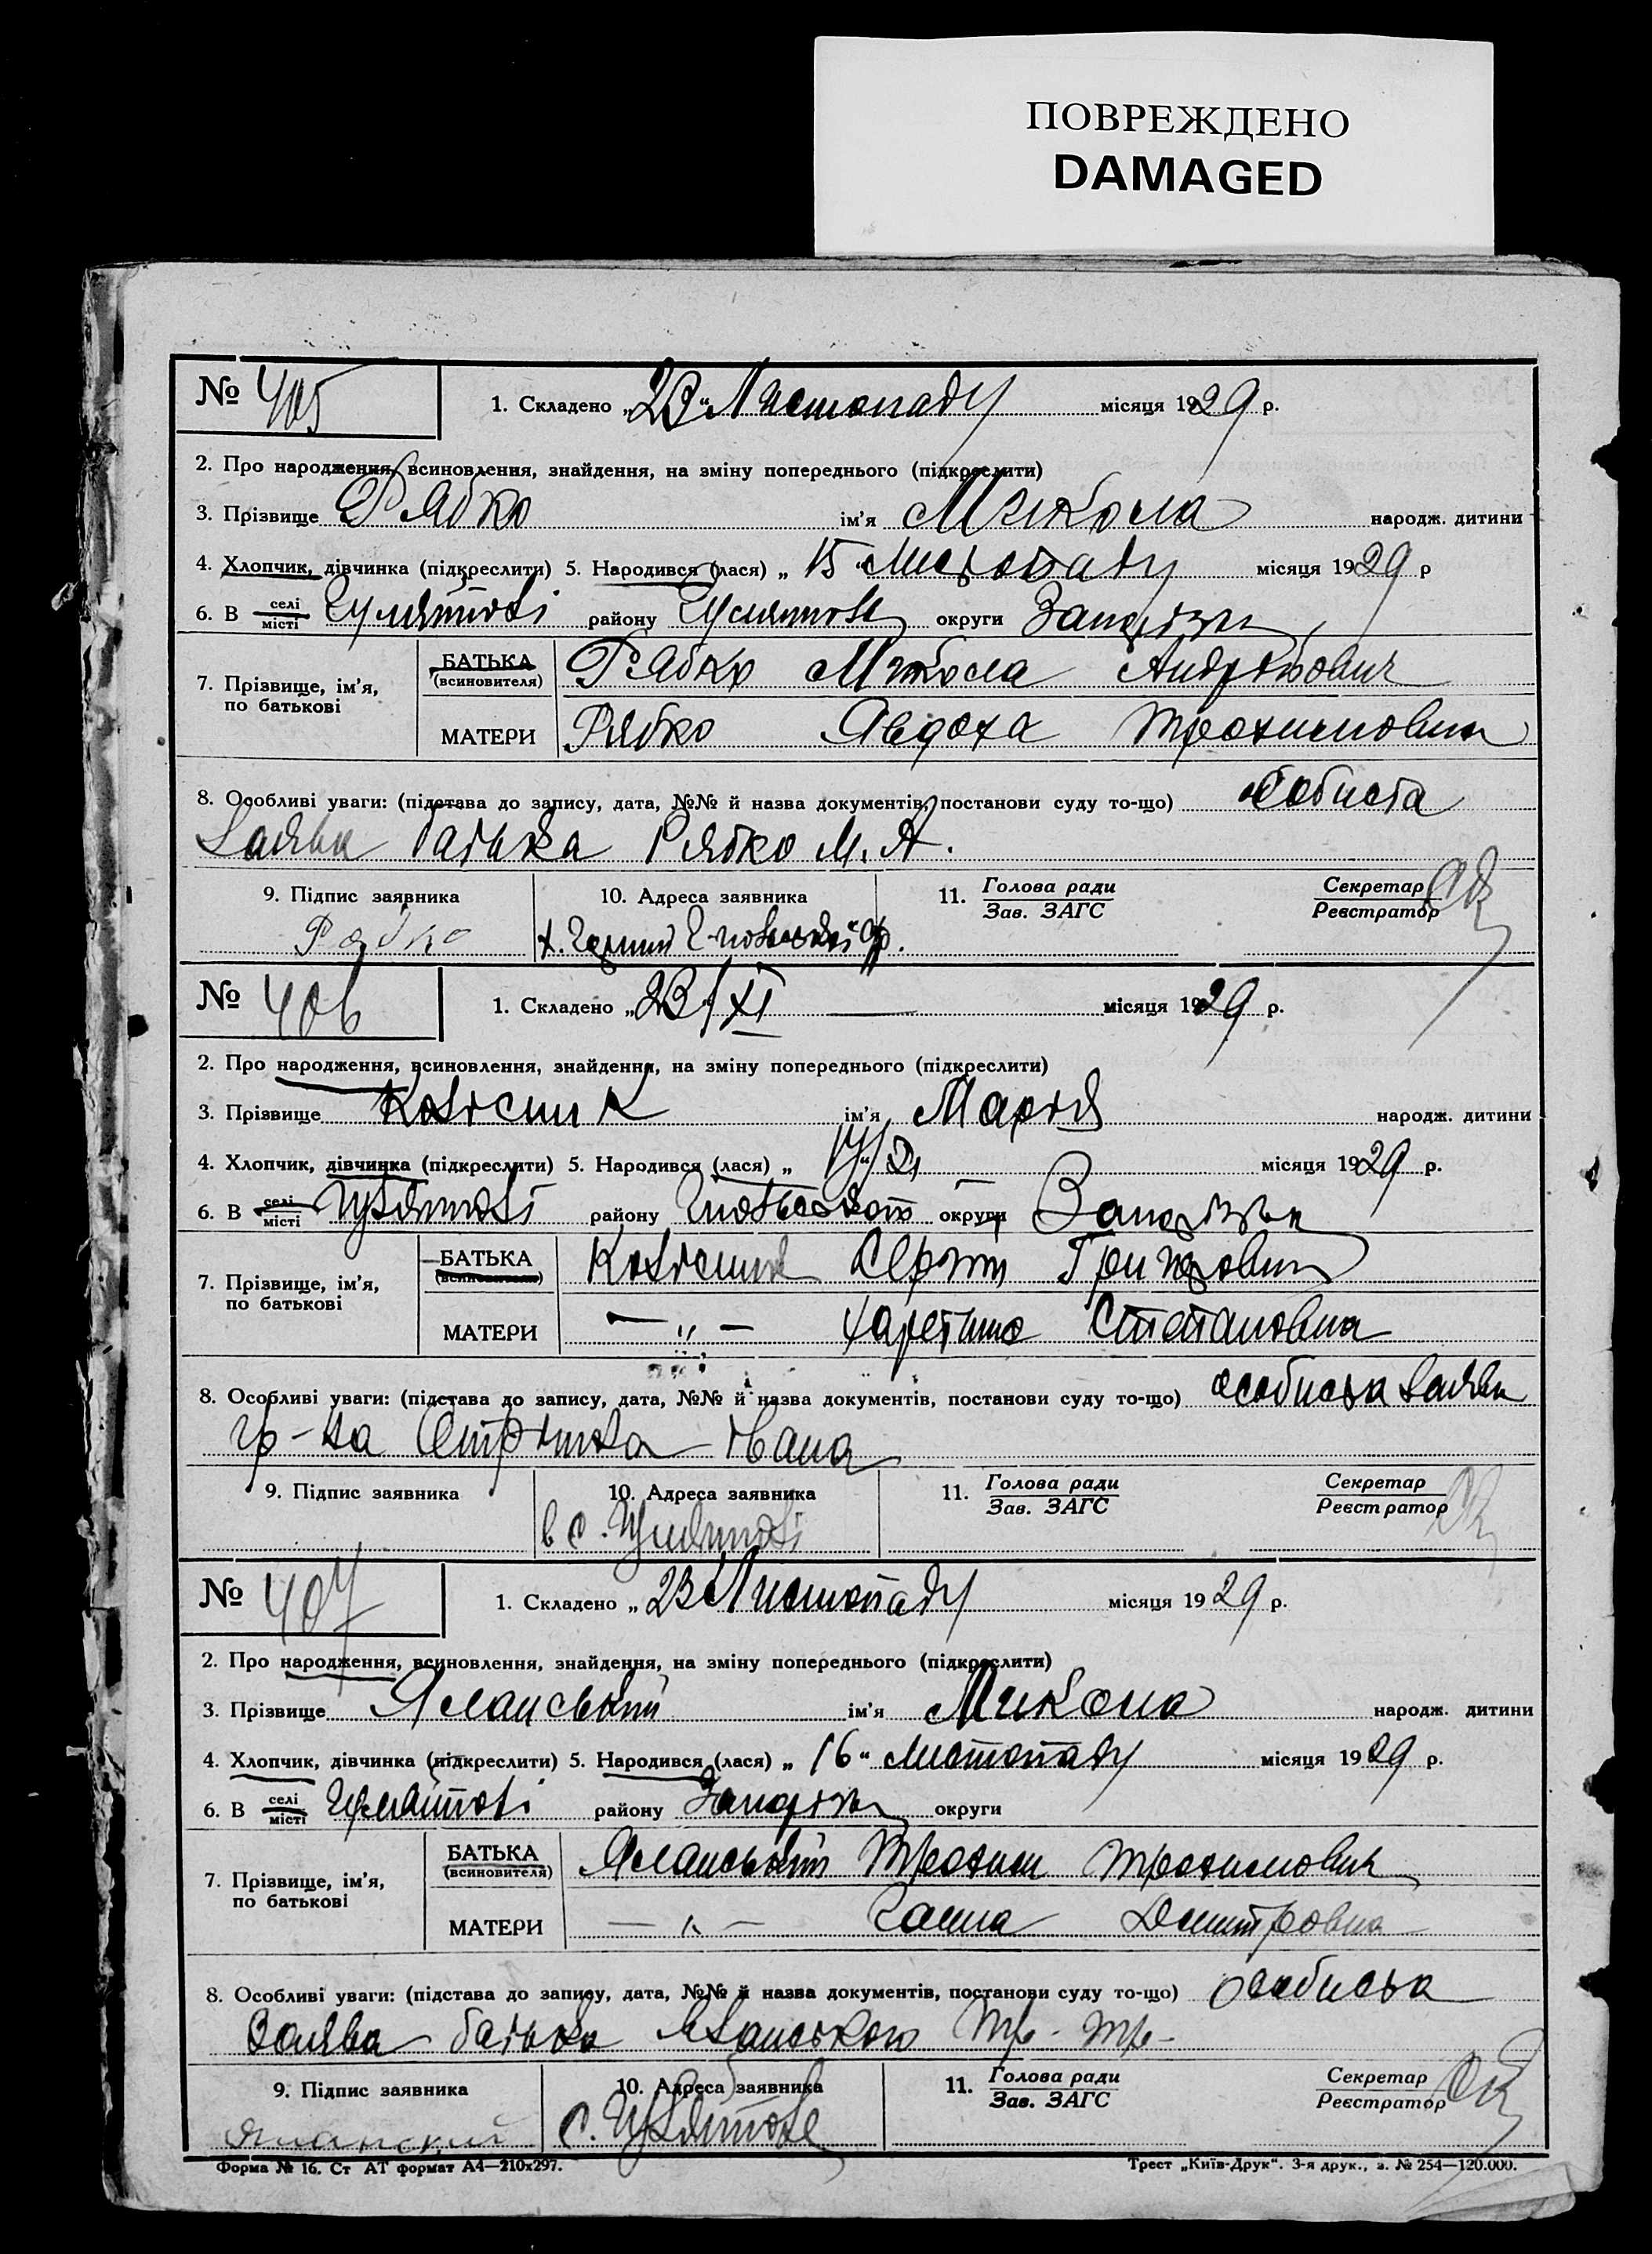 ПОВРЕЖДЕНО
DAMAGED
№ 405
1. Складено „23“ Листопаду місяця 1929 р.
2. Про народження, всиновлення, знайдення, на зміну попереднього (підкреслити)
3. Прізвище Рябко ім'я Микола народж. дитини
4. Хлопчик, дівчинка (підкреслити) 5. Народився (лася) „15“ Листопаду місяця 1929 р
6. В селі місті району округи
7. Прізвище, ім'я, по батькові
БАТЬКА (всиновителя) Рябко Микола Андрієвович
МАТЕРИ Рябко Явдоха Трохимовна
8. Особливі уваги: (підстава до запису, дата, №№ й назва документів, постанови суду то-що) особиста
заява батька Рябко М. А.
9. Підпис заявника 10. Адреса заявника 11. Голова ради Зав. ЗАГС Секретар Реєстратор
Рябко х.
№ 406
1. Складено „23“/XI місяця 1929 р.
2. Про народження, всиновлення, знайдення, на зміну попереднього (підкреслити)
3. Прізвище ім'я Марія народж. дитини
4. Хлопчик, дівчинка (підкреслити) 5. Народився (лася) „ місяця 1929 р.
6. В селі місті району округи
7. Прізвище, ім'я, по батькові
БАТЬКА (всиновителя) Сергій Григорович
МАТЕРИ — „ — Харетина Степановна
8. Особливі уваги: (підстава до запису, дата, №№ й назва документів, постанови суду то-що) особиста заява
гр-на Івана
9. Підпис заявника 10. Адреса заявника 11. Голова ради Зав. ЗАГС Секретар Реєстратор
в с.
№ 407
1. Складено „23“ Листопаду місяця 1929 р.
2. Про народження, всиновлення, знайдення, на зміну попереднього (підкреслити)
3. Прізвище Яланський ім'я Микола народж. дитини
4. Хлопчик, дівчинка (підкреслити) 5. Народився (лася) „16“ Листопаду місяця 1929 р.
6. В селі місті району округи
7. Прізвище, ім'я, по батькові
БАТЬКА (всиновителя) Яланський Трохим Трохимович
МАТЕРИ — „ — Ганна Дмитровна
8. Особливі уваги: (підстава до запису, дата, №№ й назва документів, постанови суду то-що) особиста
заява батька Яланського Тр. Тр.
9. Підпис заявника 10. Адреса заявника 11. Голова ради Зав. ЗАГС Секретар Реєстратор
Яланский с.
Форма № 16. Ст АТ формат А4—210х297. Трест „Київ-Друк“. 3-я друк., з. № 254—120.000.